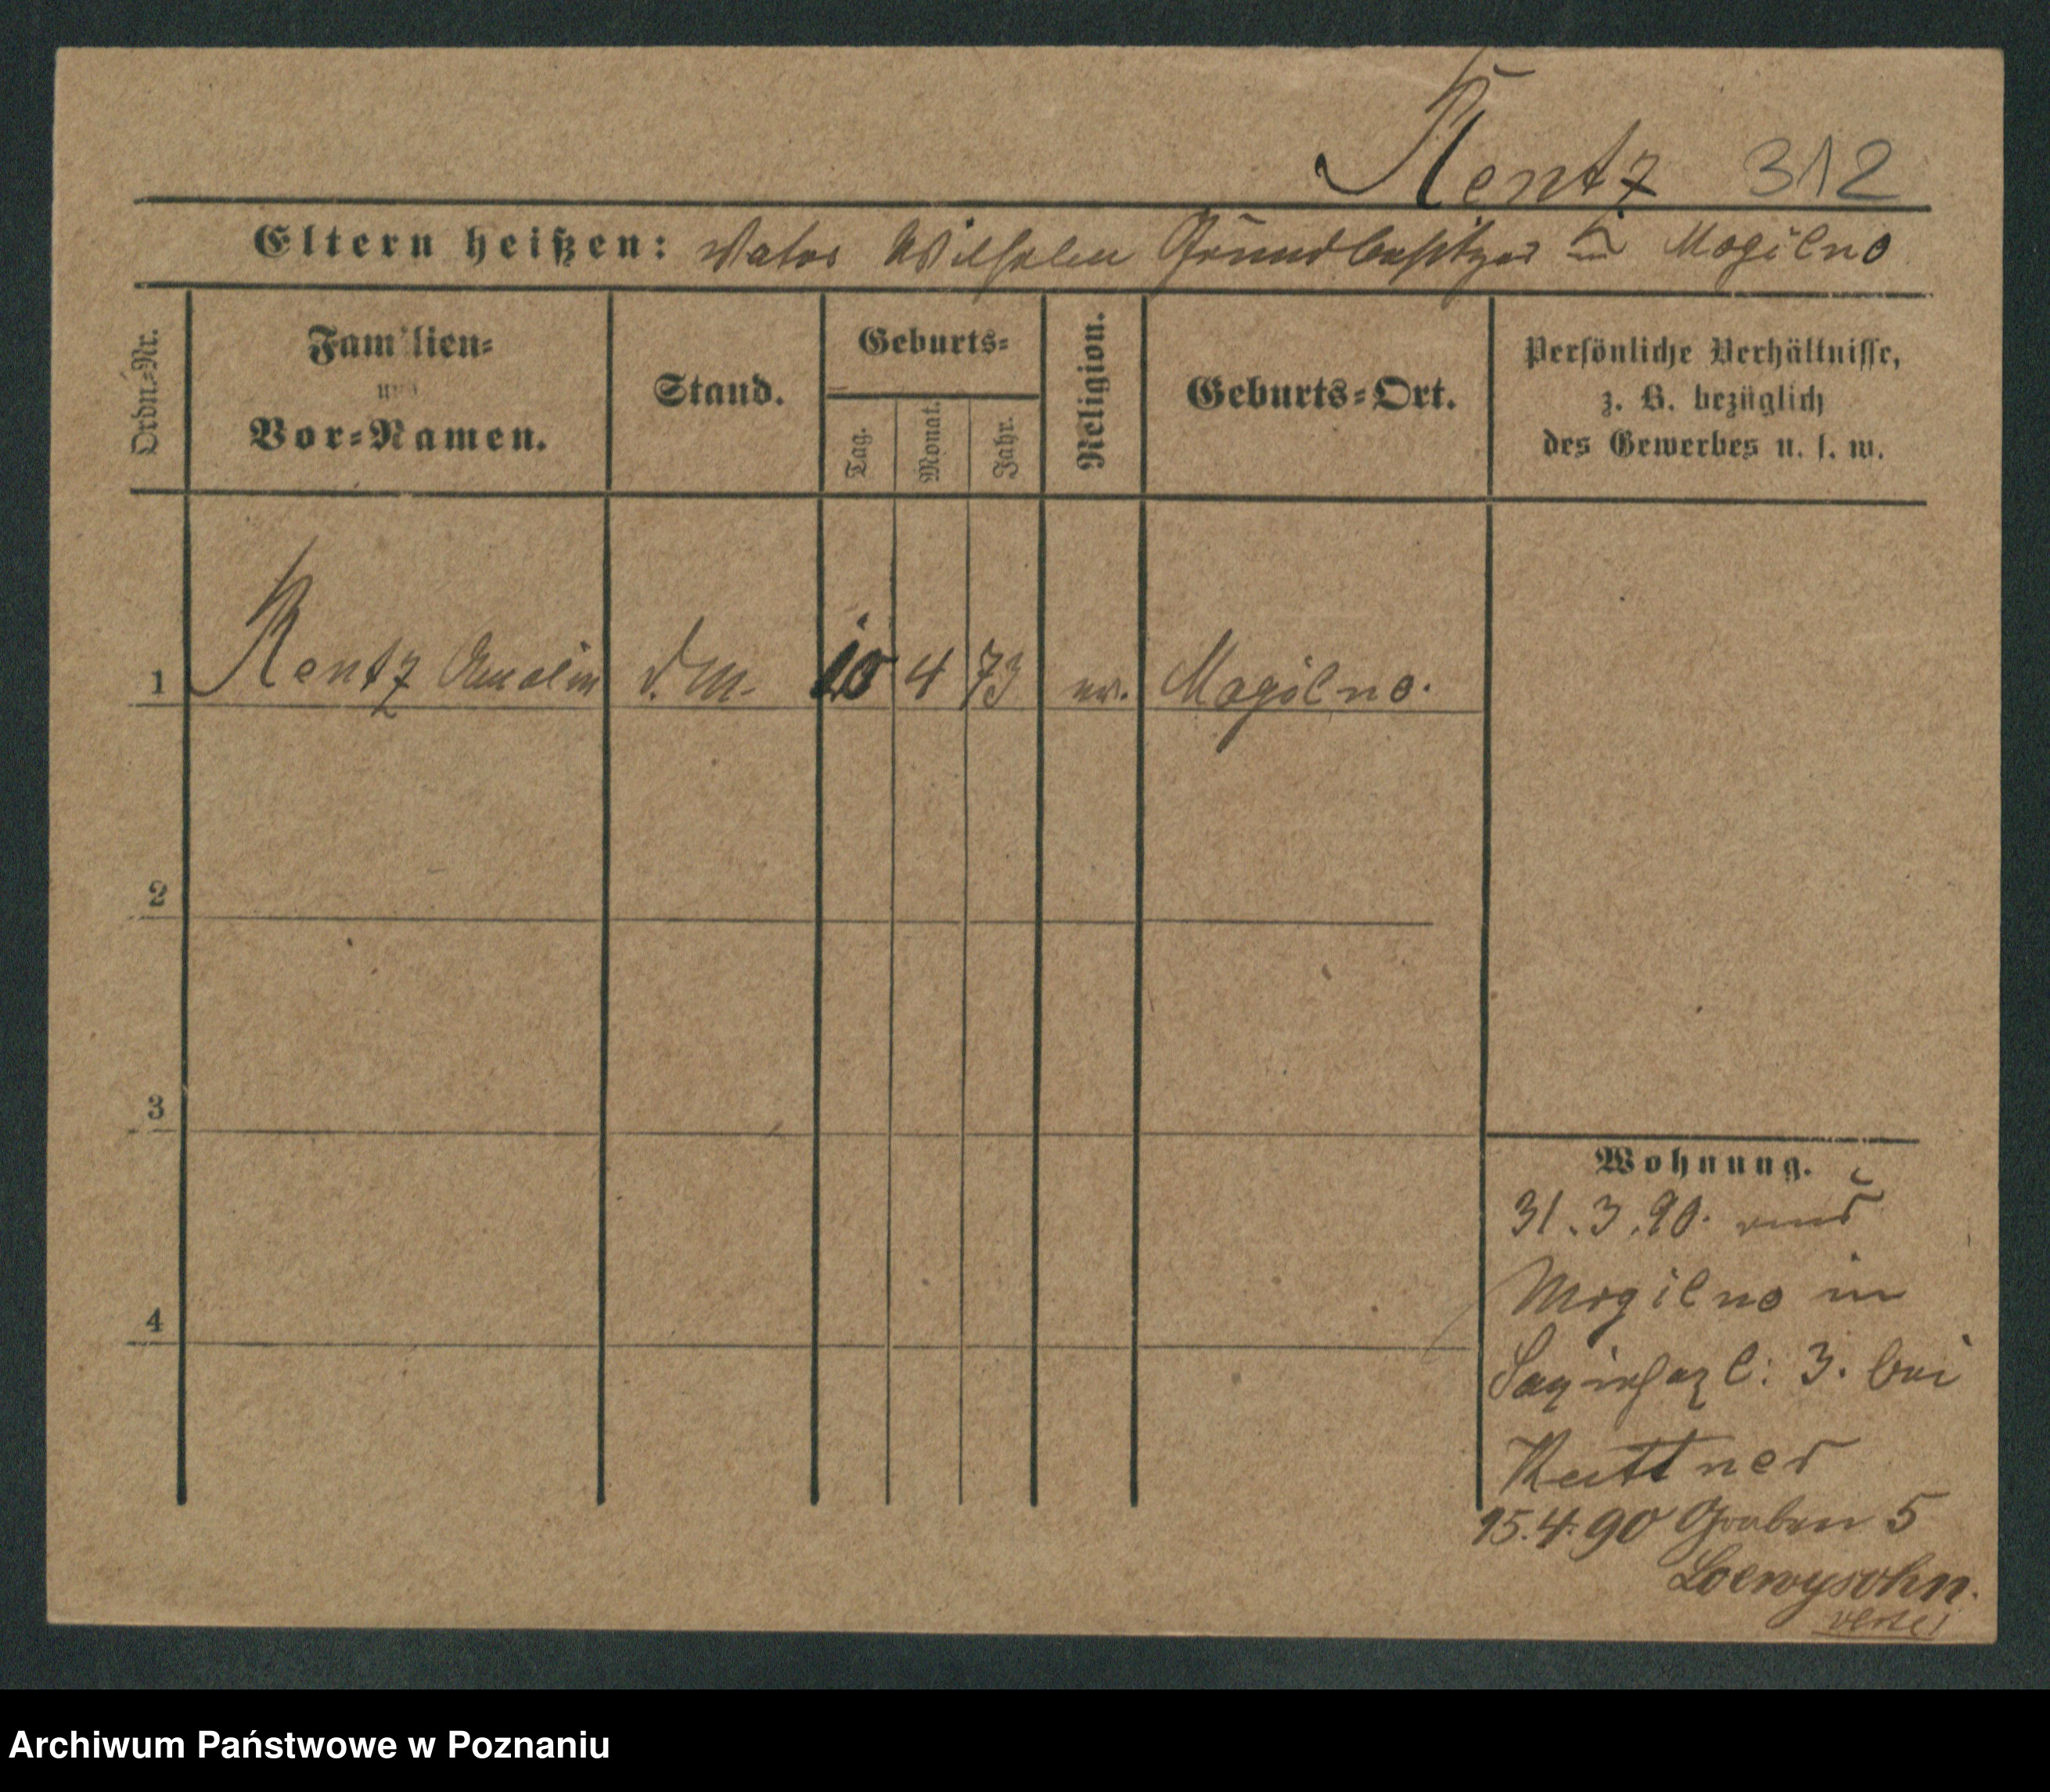 Rentz 312
Eltern heißen: Vater Wilhelm Grundbesitzer in Mogilno
Ordn.-Nr.
Familien-
und
Vor-Namen.
Stand.
Geburts-
Tag.
Monat.
Jahr.
Religion.
Geburts-Ort.
Persönliche Verhältnisse,
z. B. bezüglich
des Gewerbes u. s. w.
1 Rentz d. M. 10 4 73 ev. Mogilno.
2
3
4
Wohnung.
31.3.90.
Mogilno in
3. bei
Kuttner
15.4.90 Graben 5
Loewysohn.
Archiwum Państwowe w Poznaniu